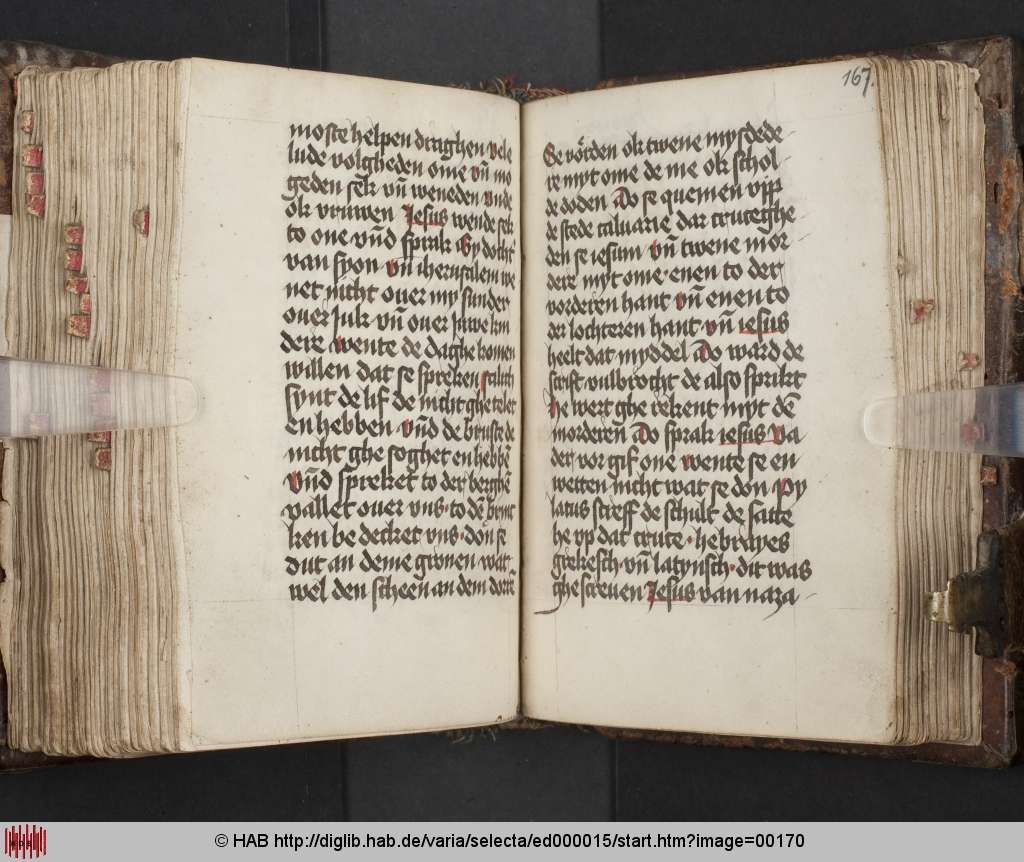 moste helpen draghen vele
lude volgheden ome vn̄ mo
geden sek vn̄ weneden vnde
ok vruwen Jesus wende sek
to one vn̄d sprak Gy docht̄
van syon vn̄ iherusalem we
net nicht ouer my sunder
ouer juk vn̄ ouer juwe kin
dere wente de daghe komen
willen dat se spreken salich
synt de lif de nicht ghetelet
en hebben vn̄d de bruste de
nicht ghe soghet en hebbē
vn̄d spreket to der berghē
vallet ouer vns to dē brinc
ken be decket vns don se
dut an deme gronen wat
wel den scheen an dem dorrē
167.
Se vörden ok twene mysdede
re myt ome de me ok schol
de doden Do se quemen vpp
de stede caluarie dar cruceghe
den se iesum vn̄ twene mor
dere myt ome enen to der
vorderen hant vn̄ enen to
der lochteren hant vn̄ iesus
heelt dat myddel Do ward de
scrift vulbrocht de also sprikt
he wert ghe rekent myt dē
morderen Do sprak iesus va
der vor gif one wente se en
wetten nicht wat se don Py
latus screff de schult de satte
he vp dat cruce hebrayes
grekesch vn̄ latynsch dit was
ghe screuen Jesus van naza
© HAB http://diglib.hab.de/varia/selecta/ed000015/start.htm?image=00170